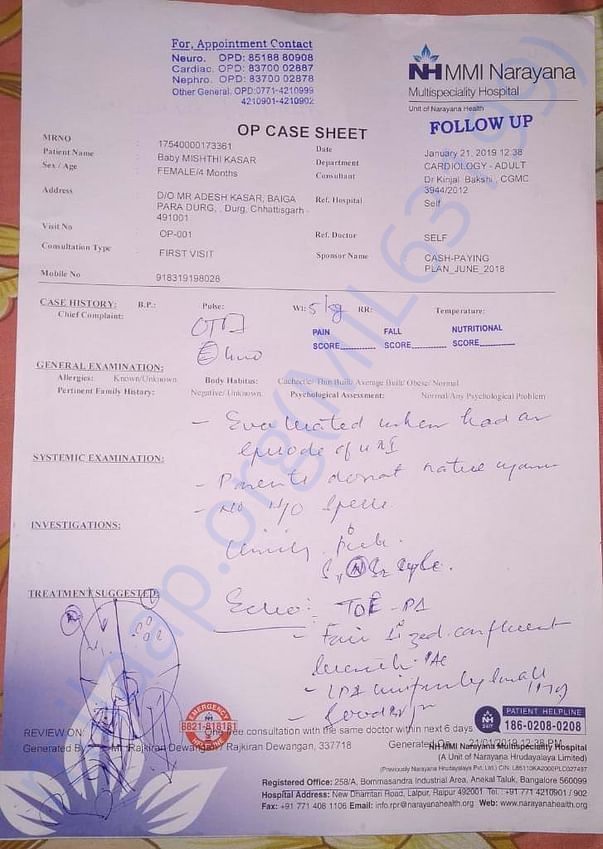 For, Appointment Contact
Neuro. OPD: 85188 80908
Cardiac. OPD: 83700 02887
Nephro. OPD: 83700 02878
Other General. OPD:0771-4210999
4210901-4210902
NH MMI Narayana
Multispeciality Hospital
Unit of Narayana Health
OP CASE SHEET
FOLLOW UP
MRNO : 17540000173361
Patient Name : Baby MISHTHI KASAR
Sex / Age : FEMALE/4 Months
Address : D/O MR ADESH KASAR, BAIGA
PARA DURG, , Durg, Chhattisgarh -
491001
Visit No : OP-001
Consultation Type : FIRST VISIT
Mobile No : 918319198028
Date : January 21, 2019 12:38
Department : CARDIOLOGY - ADULT
Consultant : Dr Kinjal Bakshi , CGMC
3944/2012
Ref. Hospital : Self
Ref. Doctor : SELF
Sponsor Name : CASH-PAYING
PLAN_JUNE_2018
CASE HISTORY: B.P.: Pulse: Wt: 5 kg RR: Temperature:
Chief Complaint:
PAIN FALL NUTRITIONAL
SCORE SCORE SCORE
GENERAL EXAMINATION:
Allergies: Known/Unknown Body Habitus: Cachectic/ Thin Built/ Average Built/ Obese/ Normal
Pertinent Family History: Negative/ Unknown Psychological Assessment: Normal/Any Psychological Problem
- Evaluated when had an
episode of
SYSTEMIC EXAMINATION:
- Parents do not notice
- No H/O Spells
INVESTIGATIONS:
TREATMENT SUGGESTED:
Echo: TOF - PA
- Fair sized confluent
branch PAs
- LPA uniformly small
- Good
EMERGENCY
8821-818181
PATIENT HELPLINE
186-0208-0208
REVIEW ON: One free consultation with the same doctor within next 6 days
Generated By : Mr Rajkiran Dewangan / Rajkiran Dewangan, 337718
NH MMI Narayana Multispeciality Hospital
(A Unit of Narayana Hrudayalaya Limited)
(Previously Narayana Hrudayalaya Pvt. Ltd.) CIN: L85110KA2000PLC027497
Registered Office: 258/A, Bommasandra Industrial Area, Anekal Taluk, Bangalore 560099
Hospital Address: New Dhamtari Road, Lalpur, Raipur 492001 Tel.: +91 771 4210901 / 902
Fax: +91 771 408 1106 Email: info.rpr@narayanahealth.org Web: www.narayanahealth.org